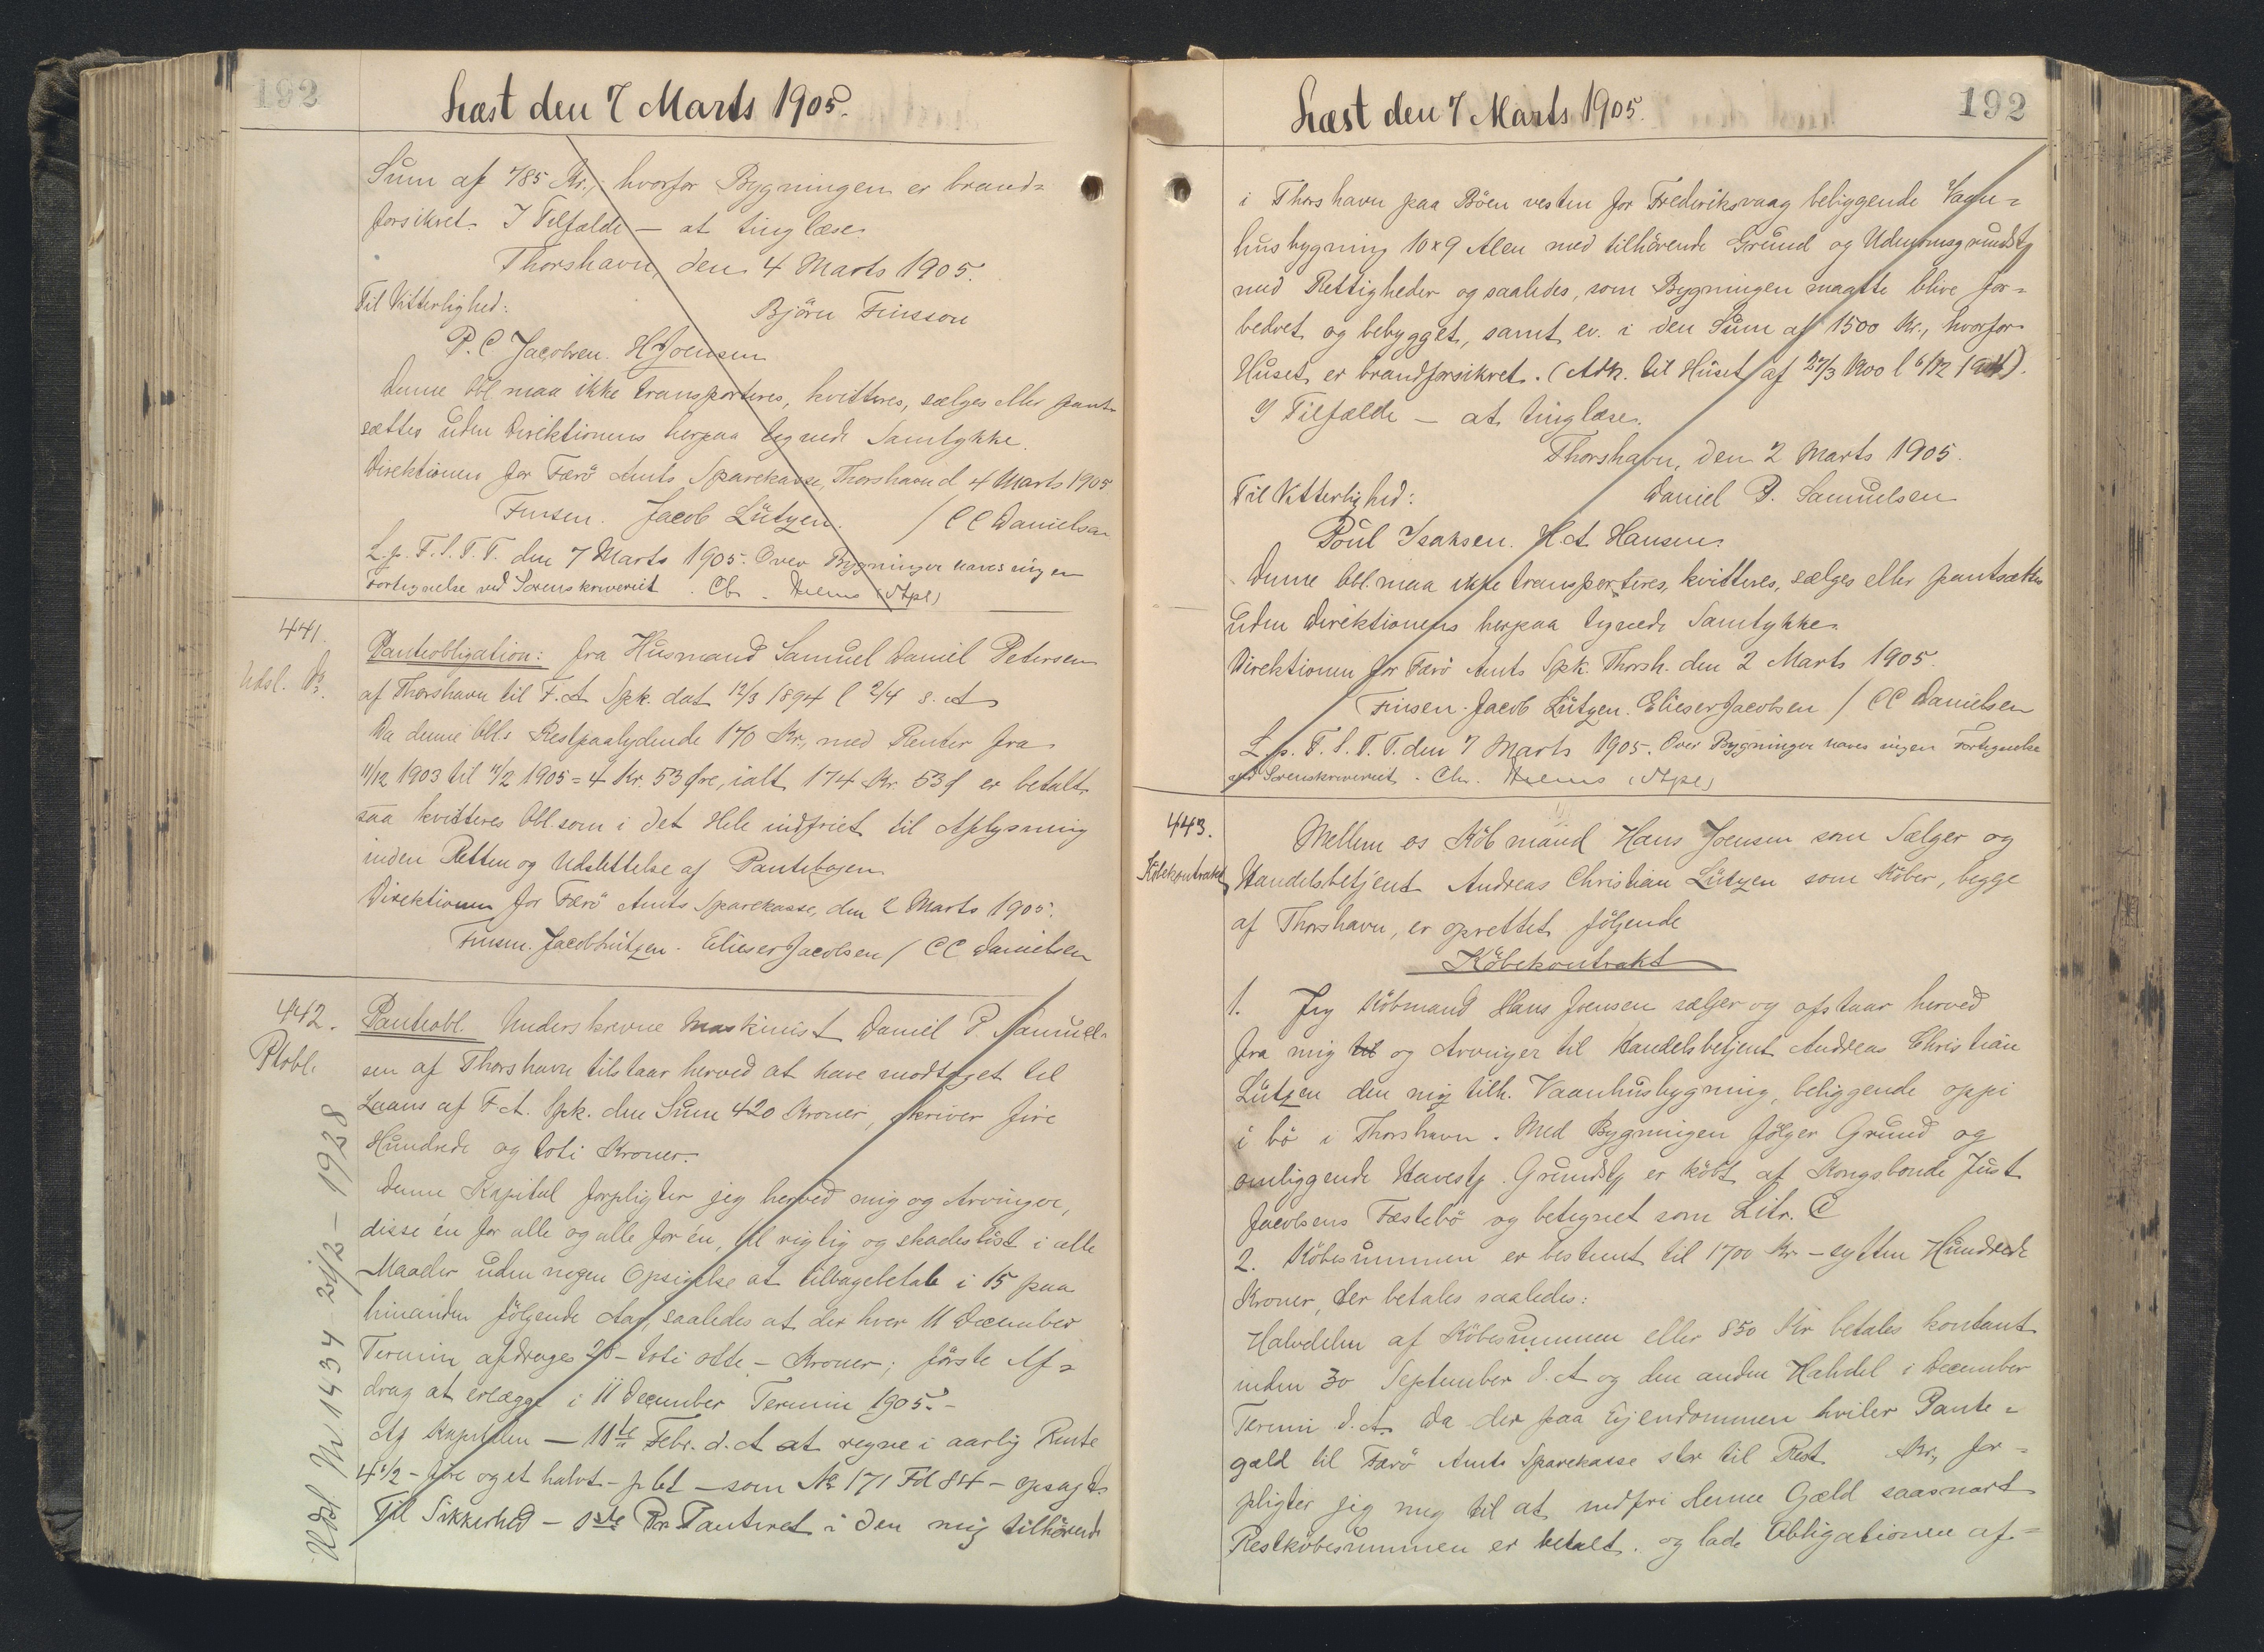 192
Læst den 7 Marts 1905.
Sum af 785 Kr., hvorfor Bygningen er brand=
forsikret. I Tilfælde — at tinglæse.
Thorshavn, den 4 Marts 1905.
Til Vitterlighed:
Björn Finsson
P. C Jacobsen. H Joensen
Denne Obl maa ikke transporteres, kvitteres, sælges eller pant-
sættes uden Direktionens herpaa tegnede Samtykke.
Direktionen for Færö Amts Sparekasse, Thorshavn d 4 Marts 1905
Finsen. Jacob Lützen. / C C Danielsen
L. p. F. S. T. T. den 7 Marts 1905. Over Bygninger haves ingen
Fortegnelse ved Sorenskriveriet. Ch.
441.
Udsl.
Panteobligation: fra Husmand Samuel Daniel Petersen
af Thorshavn til F. A Spk. dat 12/3 1894 l 2/4 s. A
Da denne Obl.s Restpaalydende 170 Kr., med Renter fra
11/12 1903 til 11/2 1905 = 4 Kr. 53 Øre, ialt 174 Kr. 53 Ø er betalt
saa kvitteres Obl. som i det Hele indfriet til Aflysning
inden Retten og Udslettelse af Pantebogen
Direktionen for Færö Amts Sparekasse, den 2 Marts 1905.
Finsen. Jacob Lützen. Elieser Jacobsen / C C Danielsen
442.
Ptobl.
Udsl Nr 1434 - 1928
Panteobl. Underskrevne Maskinist Daniel P. Samuel-
sen af Thorshavn tilstaar herved at have modtaget til
Laans af F. A. Spk. den Sum 420 Kroner, skriver fire
Hundrede og toti Kroner.
Denne Kapital forpligter jeg herved mig og Arvinger,
disse én for alle og alle for én, til rigtig og skadeslöst i alle
Maader uden nogen Opsigelse at tilbagebetale i 15 paa
hinanden følgende Aar, saaledes at der hver 11 December
Termin afdrages 28 - toti otte - Kroner; første Af=
drag at erlægge i 11 December Termin 1905. -
Af Kapitalen — 11te Febr. d. A at regne i aarlig Rente
4½ - fire og et halvt - p Ct — som No 171 Fol 84 - opsagt.
Til Sikkerhed - 1ste Pr. Panteret i den mig tilhørende
Læst den 7 Marts 1905.
192
i Thorshavn paa Böen vesten for Frederiksvaag beliggende Vaan=
husbygning 10 x 9 Alen med tilhörende Grund og Udenomsgrundstk
med Rettigheder og saaledes, som Bygningen maatte blive for=
bedret og bebygget, samt ev. i den Sum af 1500 Kr., hvorfor
Huset er brandforsikret. (Adk. til Huset af 27/3 1900 l 6/12 1904).
I Tilfælde — at tinglæse.
Thorshavn, den 2 Marts 1905.
Til Vitterlighed:
Daniel P. Samuelsen
Poul Isaksen. H. A Hansen.
Denne Obl. maa ikke transporteres, kvitteres, sælges eller pantsættes
uden Direktionens herpaa tegnede Samtykke.
Direktionen for Færö Amts Spk. Thorsh. den 2 Marts 1905.
Finsen. Jacob Lützen. Elieser Jacobsen / C C Danielsen
L. p. F. S. T. T. den 7 Marts 1905. Over Bygninger haves ingen Fortegnelse
ved Sorenskriveriet. Ch.
443.
Købekontrakt
Mellem os Købmand Hans Joensen som Sælger og
Handelsbetjent Andreas Christian Lützen som Köber, begge
af Thorshavn, er oprettet følgende
Köbekontrakt
1. Jeg Købmand Hans Joensen sælger og afstaar herved
fra mig til og Arvinger til Handelsbetjent Andreas Christian
Lützen den mig tilh. Vaanhusbygning, beliggende oppi
i bö i Thorshavn. Med Bygningen følger Grund og
omliggende Havestk. Grundstk er købt af Kongsbonde Just
Jacobsens Fæstebö og betegnet som Litr. C
2. Købesummen er bestemt til 1700 Kr - sytten Hundrede
Kroner, der betales saaledes:
Halvdelen af Købesummen eller 850 Kr betales kontant
inden 30 September d. A og den anden Halvdel i December
Termin d. A. Da der paa Ejendommen hviler Pante=
gæld til Færö Amts Sparekasse stor til Rest Kr, for=
pligter jeg mig til at indfri denne Gæld saasnart
Restkøbesummen er betalt. og lade Obligationen af=